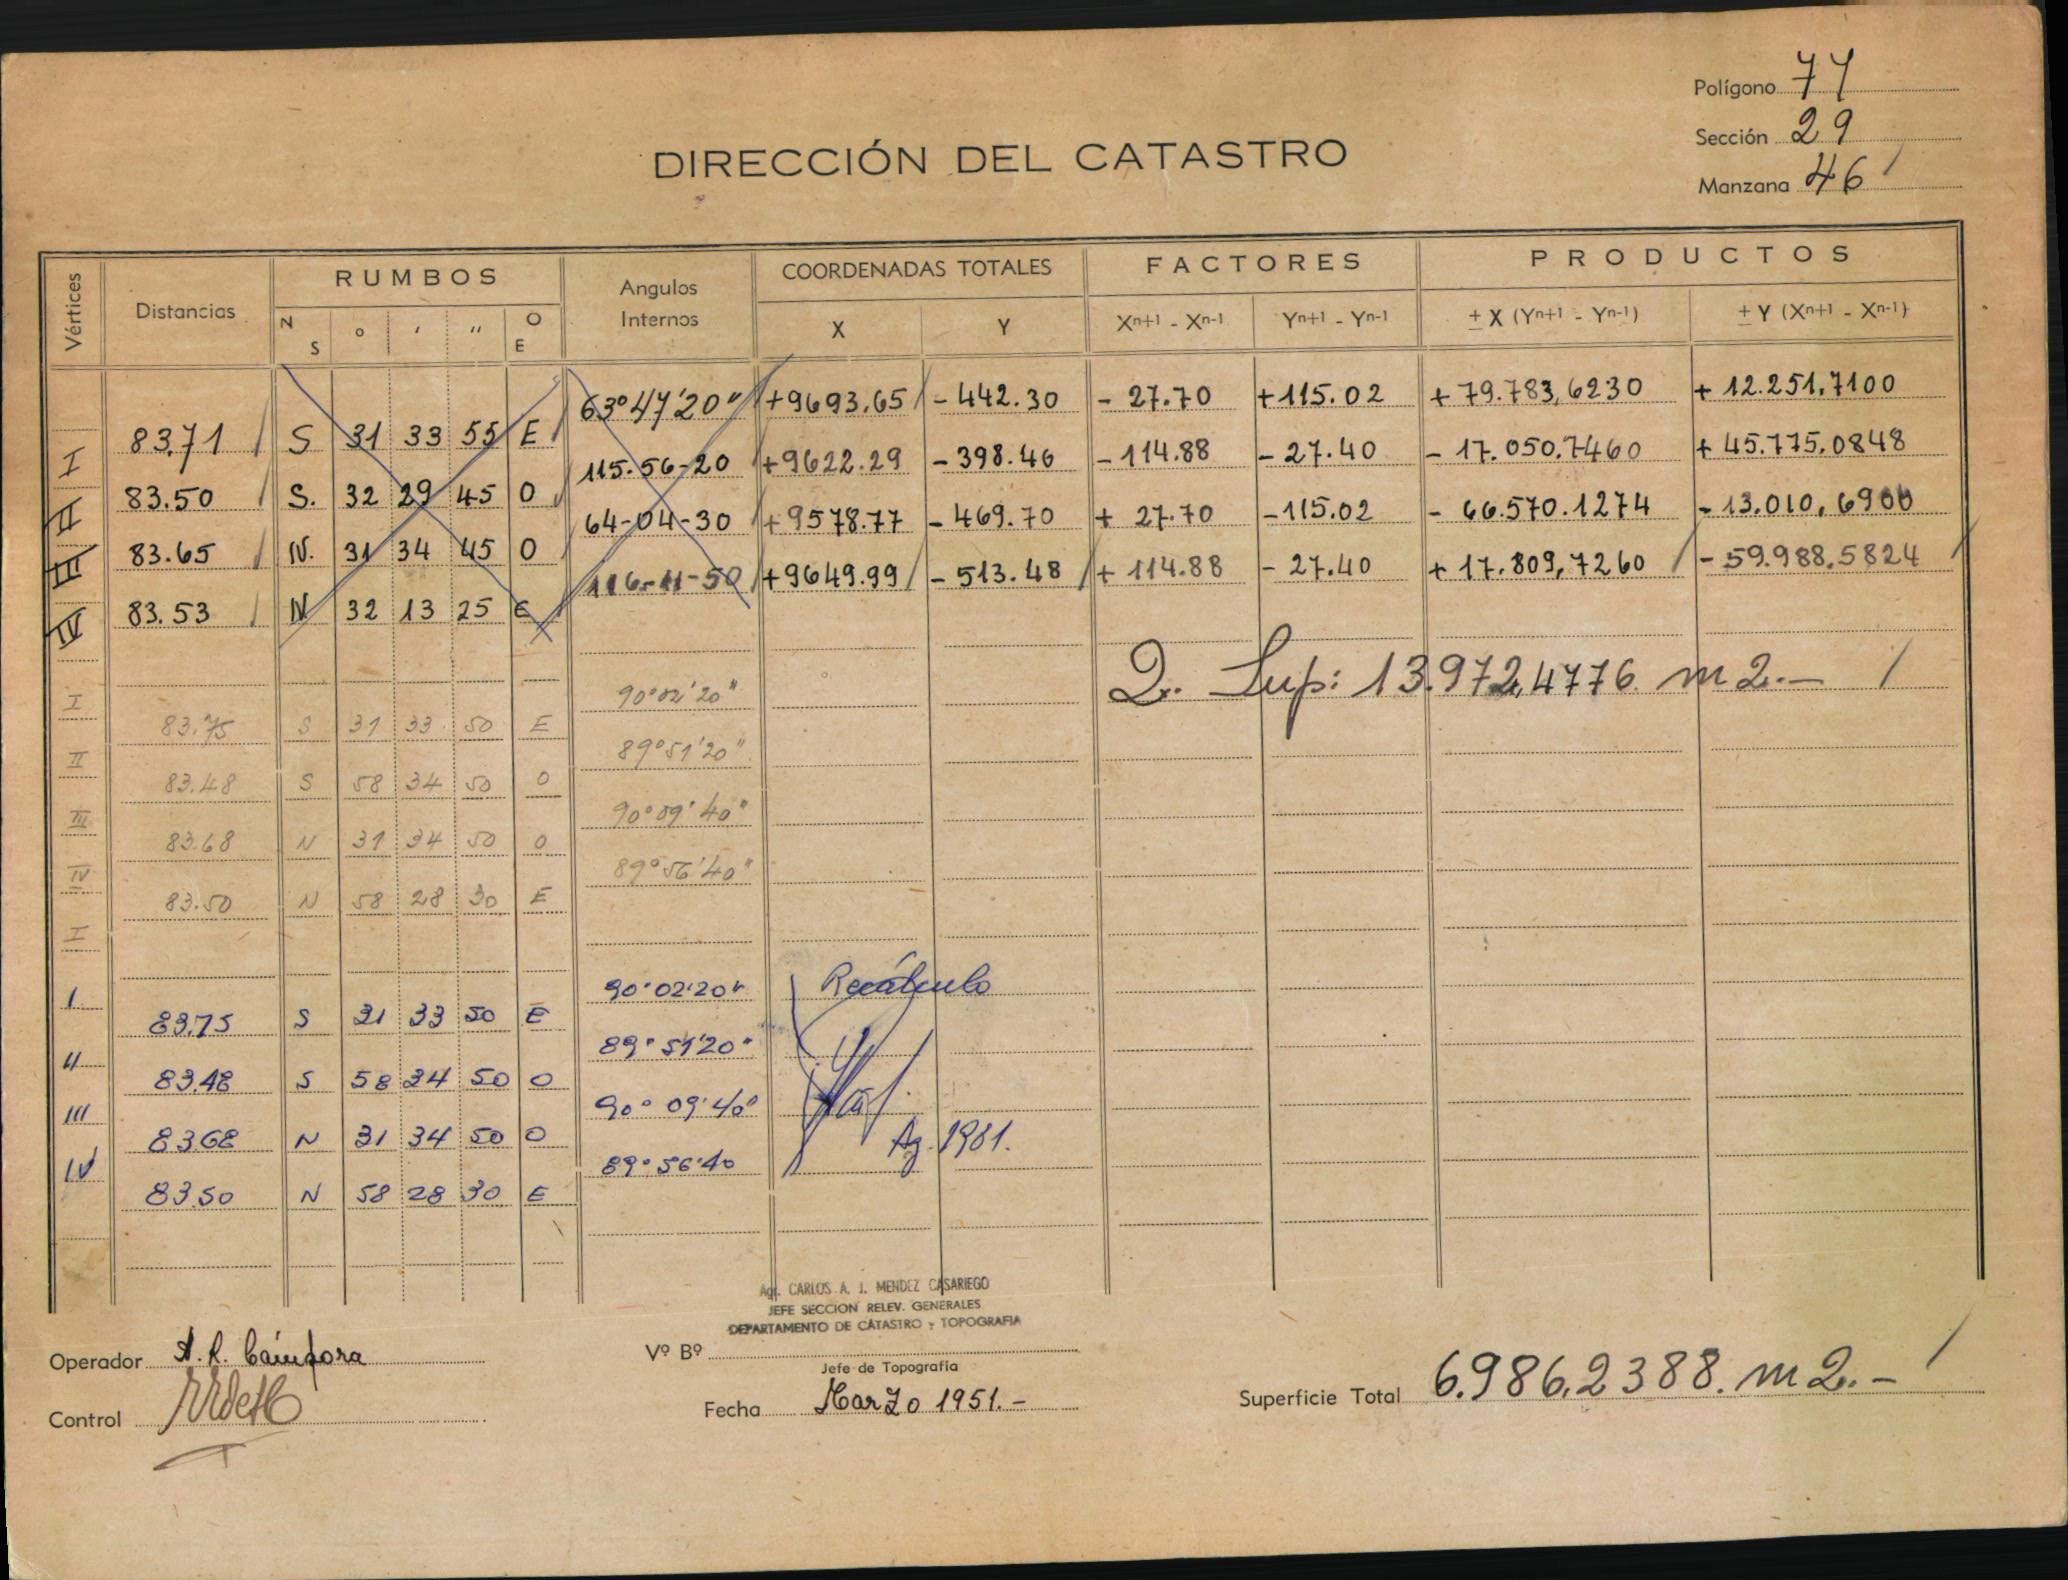 Polígono 77
Sección 29
Manzana 46
DIRECCIÓN DEL CATASTRO
Vértices Distancias RUMBOS Angulos Internos COORDENADAS TOTALES FACTORES PRODUCTOS
N S ° ' " O E X Y Xn+1 - Xn-1 Yn+1 - Yn-1 ± X (Yn+1 - Yn-1) ± Y (Xn+1 - Xn-1)
63°47'20" +9693.65 - 442.30 - 27.70 +115.02 + 79.783,6230 + 12.251,7100
I 83.71 S 31 33 55 E
115-56-20 +9622.29 - 398.46 - 114.88 - 27.40 - 17.050.7460 + 45.775.0848
II 83.50 S. 32 29 45 O
64-04-30 +9578.77 - 469.70 + 27.70 - 115.02 - 66.570.1274 - 13.010,6900
III 83.65 N. 31 34 45 O
116-11-50 +9649.99 - 513.48 + 114.88 - 27.40 + 17.809,7260 - 59.988.5824
IV 83.53 N 32 13 25 E
2.. Sup: 13.972,4776. m2.-
I 90°02'20"
83.75 S 31 33 50 E
II 89°51'20"
83.48 S 58 34 50 O
III 90°09'40"
83.68 N 31 34 50 O
IV 89°56'40"
83.50 N 58 28 30 E
I
I 90°02'20" Recálculo
83.75 S 31 33 50 E
II 89°51'20"
83.48 S 58 34 50 O
III 90°09'40"
83.68 N 31 34 50 O
Ag. 1981.
IV 89°56'40
83.50 N 58 28 30 E
Agr. CARLOS A. J. MENDEZ CASARIEGO
JEFE SECCION RELEV. GENERALES
DEPARTAMENTO DE CATASTRO y TOPOGRAFIA
Operador A. R. Cámpora
Vº Bº
Jefe de Topografía
Control
Fecha Marzo 1951.-
Superficie Total 6.986,2388. m2.-